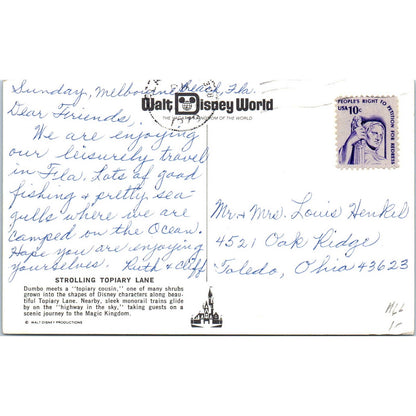 Sunday, Melbourne Beach, Fla.
Dear Friends,
We are enjoying
our leisurely travel
in Fla. Lots of good
fishing & pretty sea-
gulls where we are
camped on the Ocean.
Hope you are enjoying
yourselves. Ruth & Cliff
Walt Disney World
THE VACATION KINGDOM OF THE WORLD
PEOPLE'S RIGHT TO PETITION FOR REDRESS
USA 10c
Mr & Mrs. Louis Henkel
4521 Oak Ridge
Toledo, Ohio 43623
STROLLING TOPIARY LANE
Dumbo meets a "topiary cousin," one of many shrubs
grown into the shapes of Disney characters along beau-
tiful Topiary Lane. Nearby, sleek monorail trains glide
by on the "highway in the sky," taking guests on a
scenic journey to the Magic Kingdom.
© WALT DISNEY PRODUCTIONS